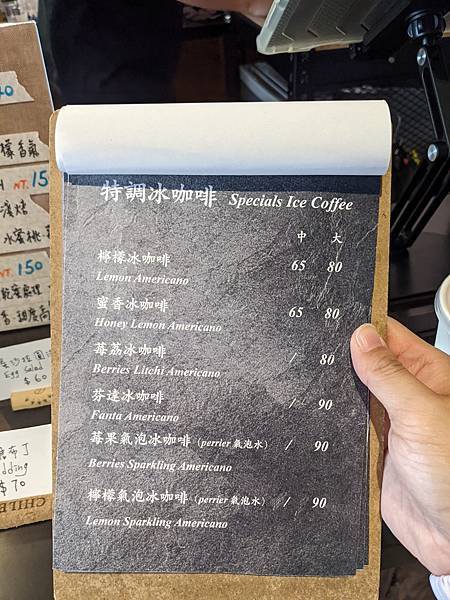 特調冰咖啡 Specials Ice Coffee
中 大
檸檬冰咖啡 65 80
Lemon Americano
蜜香冰咖啡 65 80
Honey Lemon Americano
莓荔冰咖啡 / 80
Berries Litchi Americano
芬達冰咖啡 / 90
Fanta Americano
莓果氣泡冰咖啡 (perrier 氣泡水) / 90
Berries Sparkling Americano
檸檬氣泡冰咖啡 (perrier 氣泡水) / 90
Lemon Sparkling Americano
檬香氣
NT. 15
水蜜桃
NT. 150
乾蜜處理
Egg Salad
$60
布丁
dding
70
CHILE